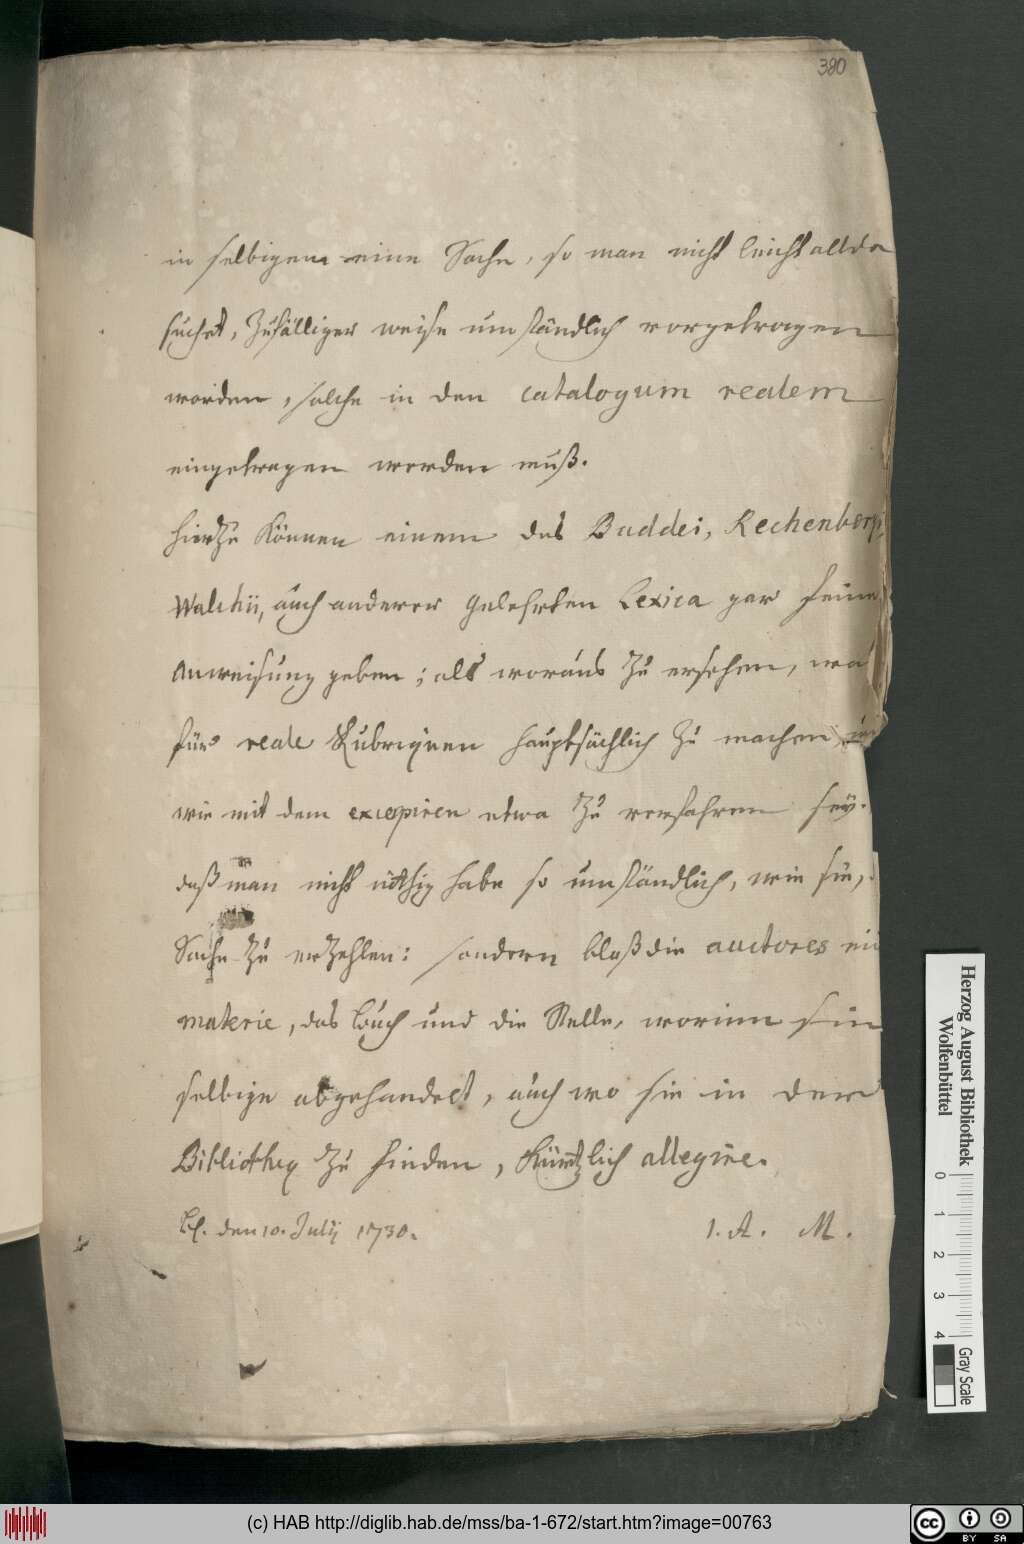 380
in selbigem eine Sache, so man nicht leicht allda
suchet, zufälliger weise umständlich vorgetragen
worden, solche in den catalogum realem
eingetragen werden muß.
hierzu können einem des Buddei, Rechenbergii,
Walchii, auch anderer gelehrten Lexica gar feine
Anweisung geben; als woraus zu ersehen, was
für reale Rubriquen hauptsächlich zu machen, un
wie mit dem excerpiren etwa zu verfahren sey.
daß man nicht nöthig habe so umständlich, wie sie,
Sache zu erzehlen: sondern bloß die auctores ei
materie, das buch und die Stelle, worinn sie
selbige abgehandelt, auch wo sie in der
Bibliotheq zu finden, kürtzlich allegire.
den 10. Julij 1730. I. A. M.
Herzog August Bibliothek
Wolfenbüttel
0 1 2 3 4
Gray Scale
(c) HAB http://diglib.hab.de/mss/ba-1-672/start.htm?image=00763
cc BY SA